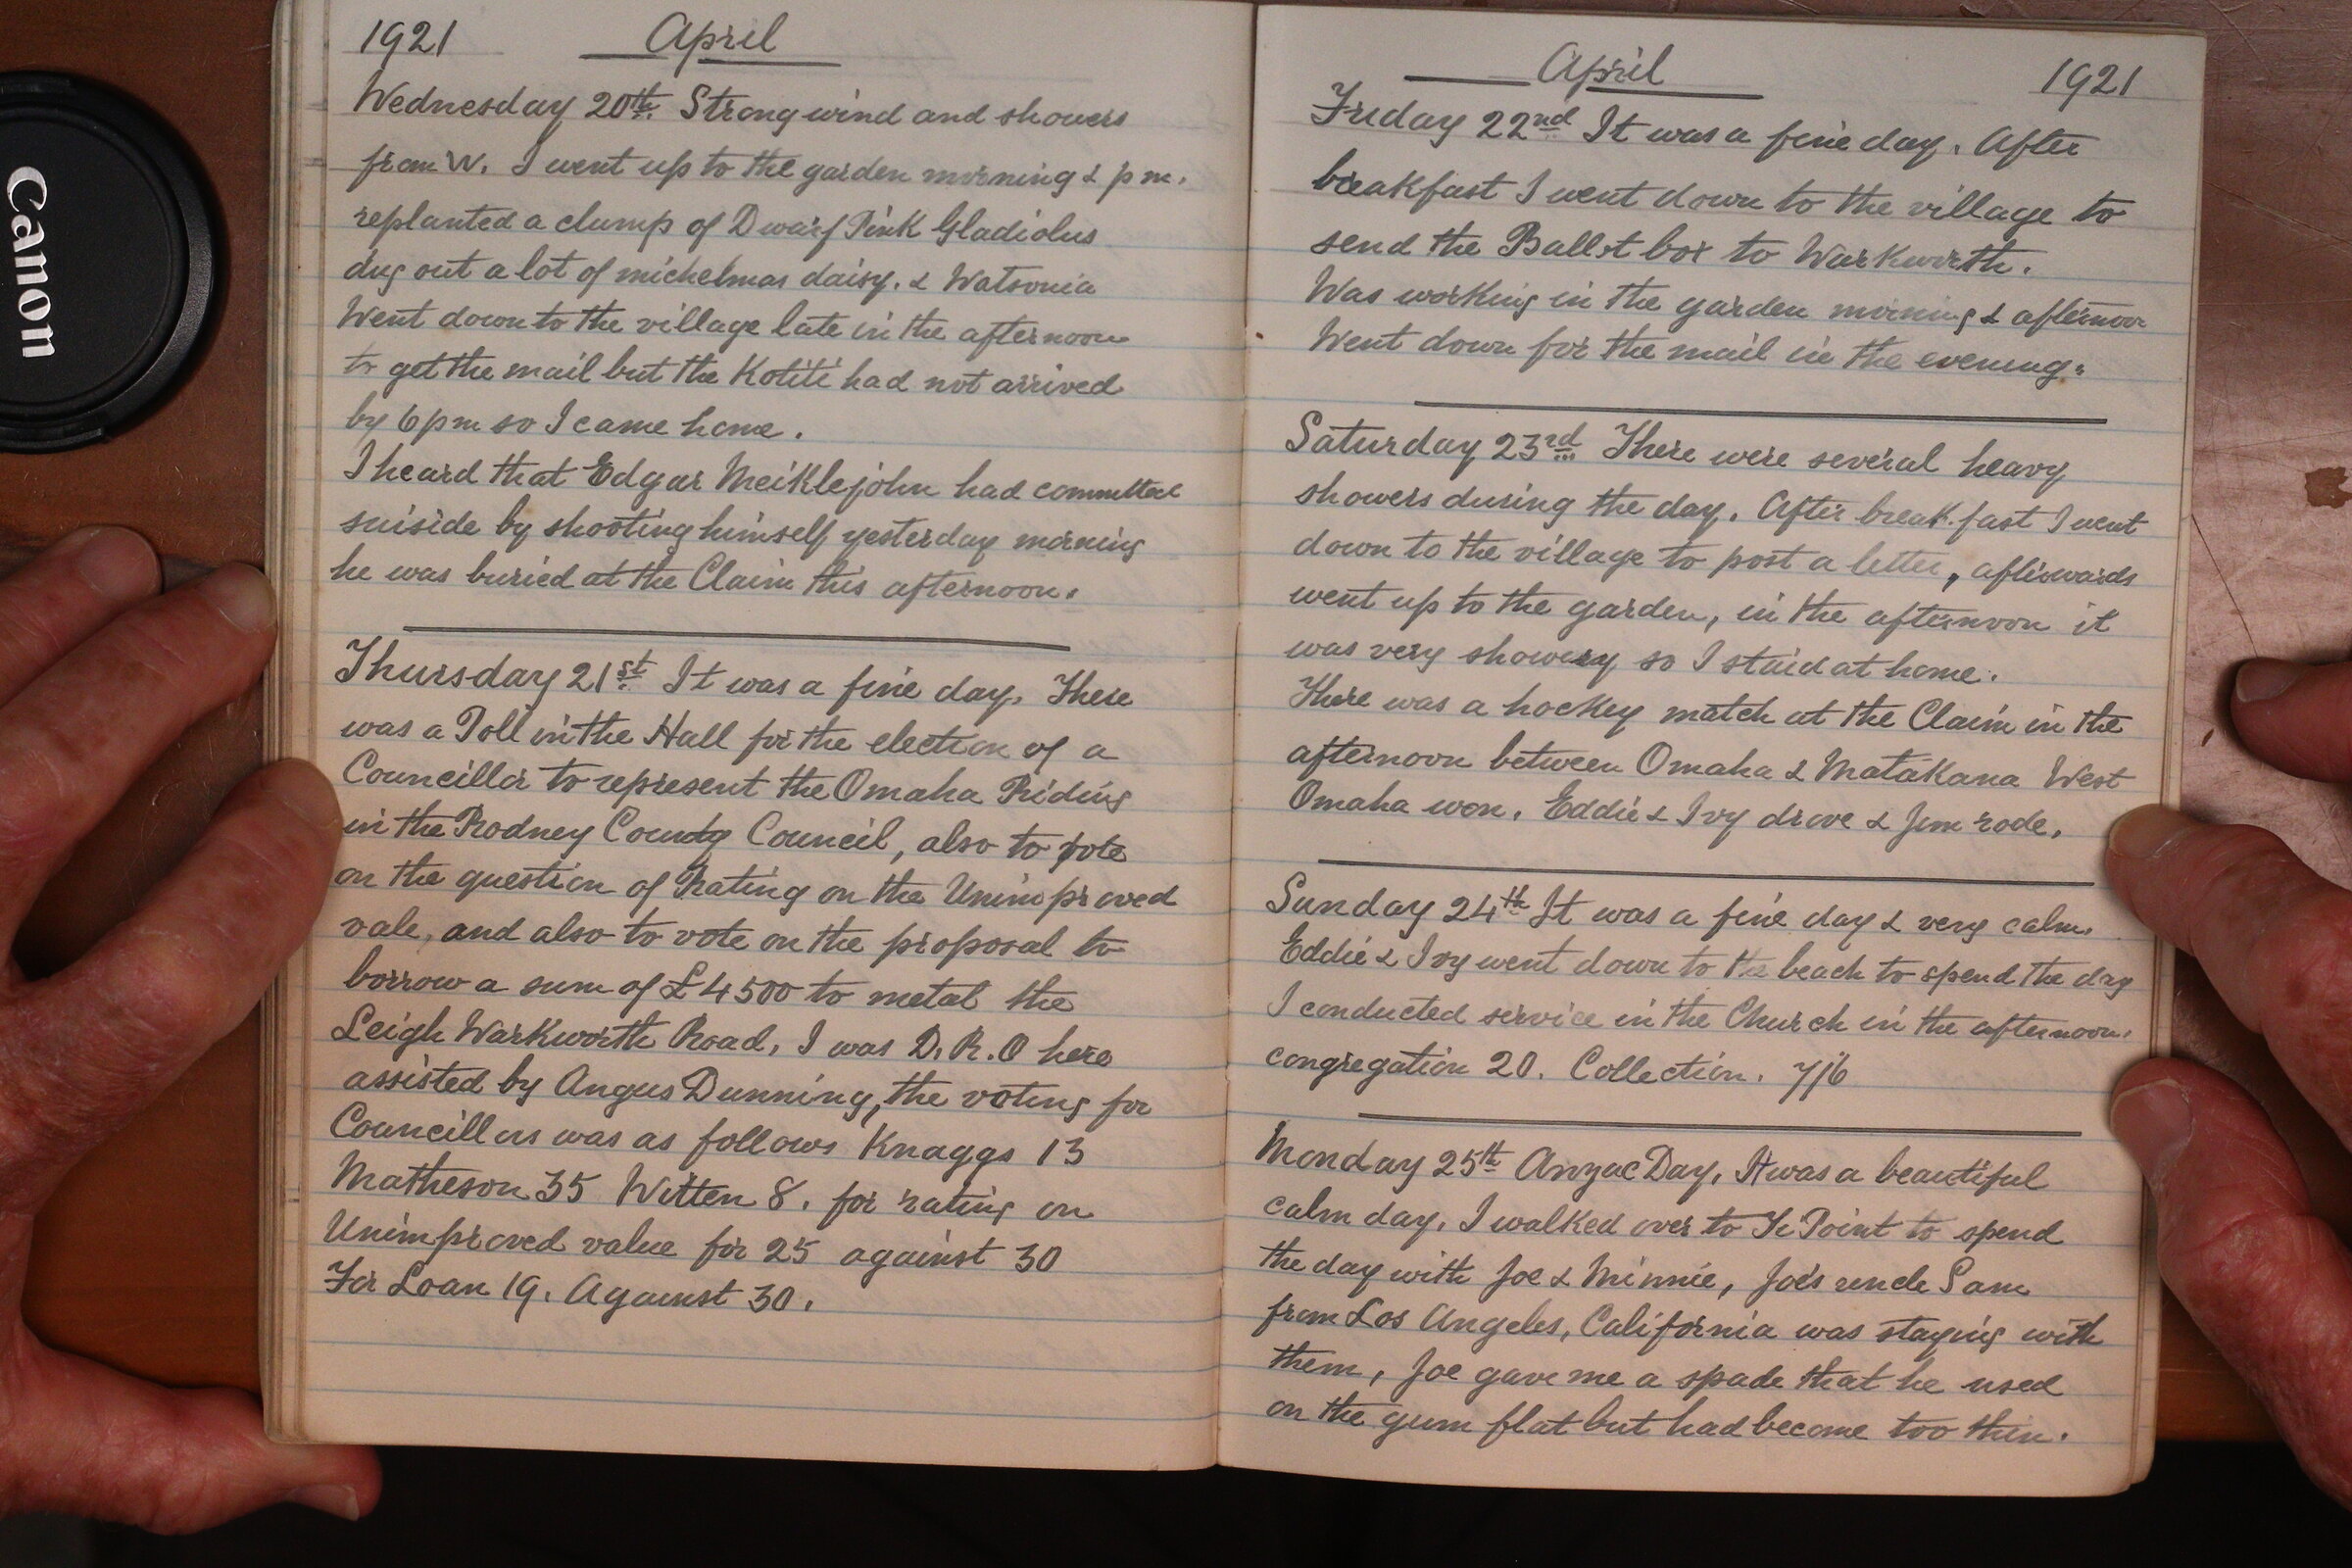 Canon
1921 April
Wednesday 20th. Strong wind and showers
from W. I went up to the garden morning & pm.
replanted a clump of Dwarf Pink Gladiolus
dug out a lot of michelmas daisy. & Watsonia
Went down to the village late in the afternoon
to get the mail but the Kotiti had not arrived
by 6 pm so I came home.
I heard that Edgar Meiklejohn had committed
suiside by shooting himself yesterday morning
he was buried at the Claim this afternoon.
Thursday 21st It was a fine day. There
was a Poll in the Hall for the election of a
Councillor to represent the Omaha Riding
in the Rodney County Council, also to vote
on the question of Rating on the Unimproved
vale, and also to vote on the proposal to
borrow a sum of £4500 to metal the
Leigh Warkworth Road, I was D.R.O here
assisted by Angus Dunning, the voting for
Councillors was as follows Knaggs 13
Matheson 35 Witten 8. for rating on
Unimproved value for 25 against 30
For Loan 19. Against 30.
April 1921
Friday 22nd It was a fine day. After
breakfast I went down to the village to
send the Ballot box to Warkworth.
Was working in the garden morning & afternoon
Went down for the mail in the evening.
Saturday 23rd There were several heavy
showers during the day. After breakfast I went
down to the village to post a letter, afterwards
went up to the garden, in the afternoon it
was very showery so I staid at home.
There was a hockey match at the Claim in the
afternoon between Omaha & Matakana West
Omaha won. Eddie & Ivy drove & Jim rode.
Sunday 24th It was a fine day & very calm.
Eddie & Ivy went down to the beach to spend the day
I conducted service in the Church in the afternoon.
congregation 20. Collection. 7/6
Monday 25th Anzac Day. It was a beautiful
calm day. I walked over to Ti Point to spend
the day with Joe & Minnie, Joe's uncle Sam
from Los Angeles, California was staying with
them, Joe gave me a spade that he used
on the gum flat but had become too thin.